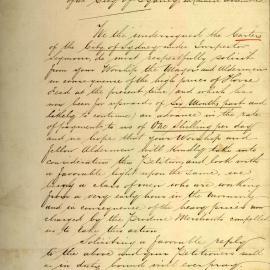 of the City of Sydney
We the undersigned the Carters
of the City of Sydney under Inspector
Seymour, do most respectfully solicit
from your Worship the Mayor and Aldermen
in consequence of the high prices of Horse
Feed at the present time, and which has
now been for upwards of Six Months past and
likely to continue, an advance in the rate
of payment to us of One Shilling per day
and we hope that your Worship and
fellow Aldermen will kindly take into
consideration this Petition and look with
a favorable light upon the same, we
being a class of men who are working
from a very early hour in the morning
and in consequence of the heavy prices now
charged by the Produce Merchants compelled
us to take this action
Soliciting a favorable reply
to the above and your Petitioners will
as in duty bound will ever pray.